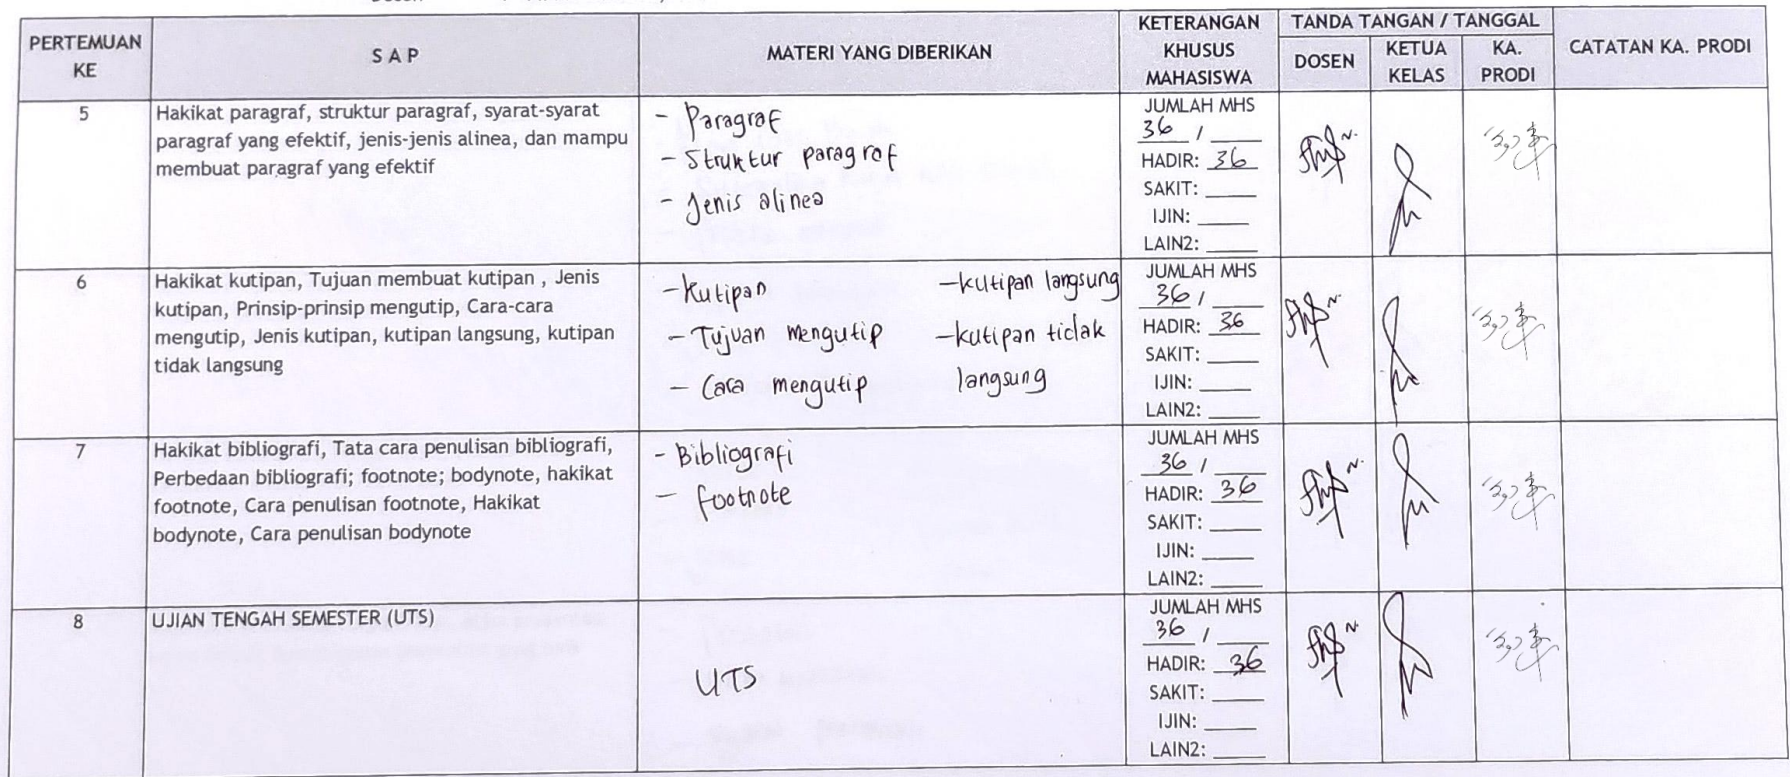 PERTEMUAN KE
S A P
MATERI YANG DIBERIKAN
KETERANGAN KHUSUS MAHASISWA
TANDA TANGAN / TANGGAL
DOSEN
KETUA KELAS
KA. PRODI
CATATAN KA. PRODI
5
Hakikat paragraf, struktur paragraf, syarat-syarat
paragraf yang efektif, jenis-jenis alinea, dan mampu
membuat paragraf yang efektif
- Paragraf
- Struktur paragraf
- Jenis alinea
JUMLAH MHS
36 /
HADIR: 36
SAKIT:
IJIN:
LAIN2:
6
Hakikat kutipan, Tujuan membuat kutipan , Jenis
kutipan, Prinsip-prinsip mengutip, Cara-cara
mengutip, Jenis kutipan, kutipan langsung, kutipan
tidak langsung
- Kutipan
- Tujuan mengutip
- Cara mengutip
- kutipan langsung
- kutipan tidak
langsung
JUMLAH MHS
36 /
HADIR: 36
SAKIT:
IJIN:
LAIN2:
7
Hakikat bibliografi, Tata cara penulisan bibliografi,
Perbedaan bibliografi; footnote; bodynote, hakikat
footnote, Cara penulisan footnote, Hakikat
bodynote, Cara penulisan bodynote
- Bibliografi
- footnote
JUMLAH MHS
36 /
HADIR: 36
SAKIT:
IJIN:
LAIN2:
8
UJIAN TENGAH SEMESTER (UTS)
UTS
JUMLAH MHS
36 /
HADIR: 36
SAKIT:
IJIN:
LAIN2: